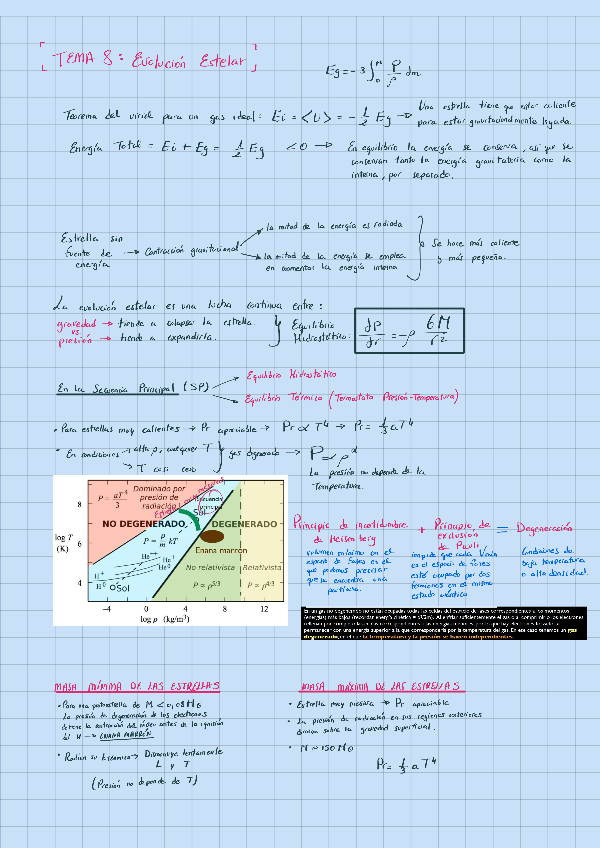 TEMA 8: Evolución Estelar
Eg = -3 ∫₀ᴹ P/ρ dm
Teorema del virial para un gas ideal: Ei = <U> = - 1/2 Eg → Una estrella tiene que estar caliente
para estar gravitacionalmente ligada.
Energía Total = Ei + Eg = 1/2 Eg < 0 → En equilibrio la energía se conserva, así que se
conservan tanto la energía gravitatoria como la
interna, por separado.
Estrella sin
fuente de
energía
→ Contracción gravitacional
la mitad de la energía es radiada
la mitad de la energía se emplea
en aumentar la energía interna
Se hace más caliente
y más pequeña.
La evolución estelar es una lucha continua entre:
gravedad → tiende a colapsar la estrella.
vs.
presión → tiende a expandirla.
Equilibrio
Hidrostático:
dP/dr = -ρ GM/r²
En la Secuencia Principal (SP)
Equilibrio Hidrostático
Equilibrio Térmico (Termostato Presión-Temperatura)
• Para estrellas muy calientes → Pr apreciable → Pr ∝ T⁴ → Pr = 1/3 a T⁴
• En condiciones → alta ρ, cualquier T
→ T casi cero
gas degenerado → P ∝ ρ^α
La presión no depende de la
Temperatura.
Dominado por
presión de
radiación
P = aT⁴/3
NO DEGENERADO
DEGENERADO
P = ρ/m kT
Secuencia
principal
Sol
Enana marron
No relativista
Relativista
P ∝ ρ^5/3
P ∝ ρ^4/3
He⁺⁺
He⁺
He⁺
He⁰
H⁺
H⁰
Sol
log T
(K)
8
6
4
-4 0 4 8 12
log ρ (kg/m³)
Principio de incertidumbre
de Heisenberg
+ Principio de
exclusión
de Pauli
= Degeneración
volumen mínimo en el
espacio de fases en el
que podemos precisar
que se encuentra una
partícula.
impide que cada Vmin
en el espacio de fases
esté ocupado por dos
fermiones en el mismo
estado cuántico
Condiciones de
baja temperatura
o alta densidad.
degenerado, en el que la temperatura y la presión se hacen independientes.
MASA MÍNIMA DE LAS ESTRELLAS
• Para una protoestrella de M < 0,08 M⊙
la presión de degeneración de los electrones
detiene la contracción del núcleo antes de la ignición
del H → ENANA MARRÓN
→ Disminuye lentamente
L y T
(Presión no depende de T)
MASA MÁXIMA DE LAS ESTRELLAS
• Estrella muy masiva → Pr apreciable
• La presión de radiación en sus regiones exteriores
domina sobre la gravedad superficial.
• M ~ 150 M⊙
Pr = 1/3 a T⁴